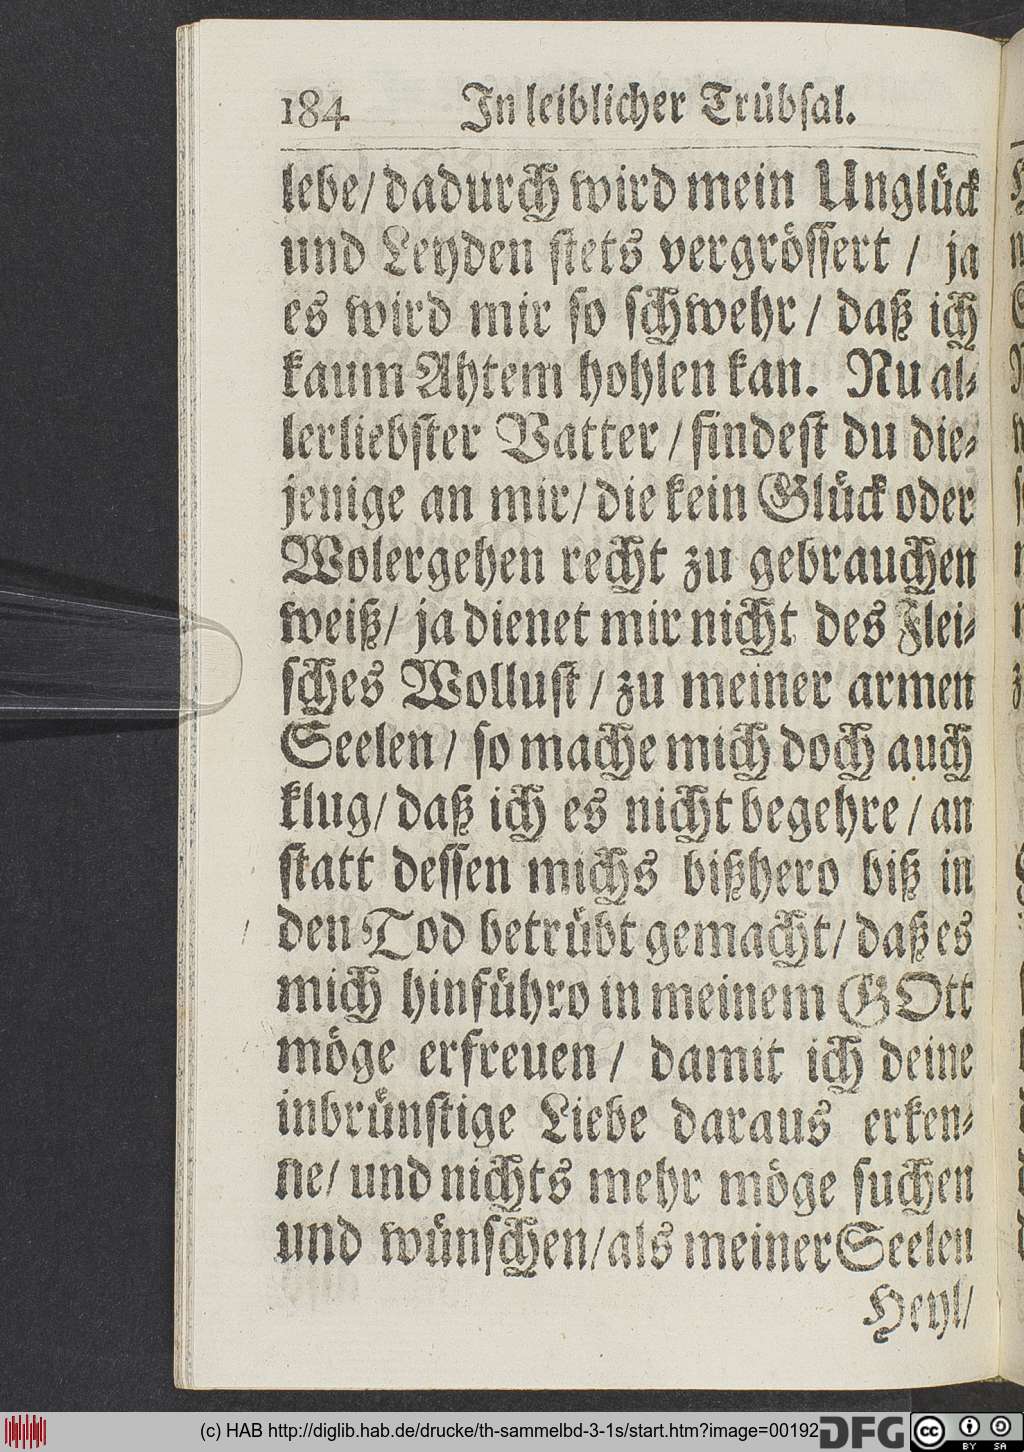 184 In leiblicher Trübsal.
lebe/ dadurch wird mein Unglück
und Leyden stets vergrössert / ja
es wird mir so schwehr / daß ich
kaum Ahtem hohlen kan. Nu al-
lerliebster Vatter / findest du die-
jenige an mir/ die kein Glück oder
Wolergehen recht zu gebrauchen
weiß/ ja dienet mir nicht des Flei-
sches Wollust / zu meiner armen
Seelen / so mache mich doch auch
klug/ daß ich es nicht begehre / an
statt dessen michs bißhero biß in
den Tod betrübt gemacht/ daß es
mich hinführo in meinem GOtt
möge erfreuen / damit ich deine
inbrünstige Liebe daraus erken-
ne/ und nichts mehr möge suchen
und wünschen/als meiner Seelen
Heyl/
(c) HAB http://diglib.hab.de/drucke/th-sammelbd-3-1s/start.htm?image=00192
DFG
cc BY SA